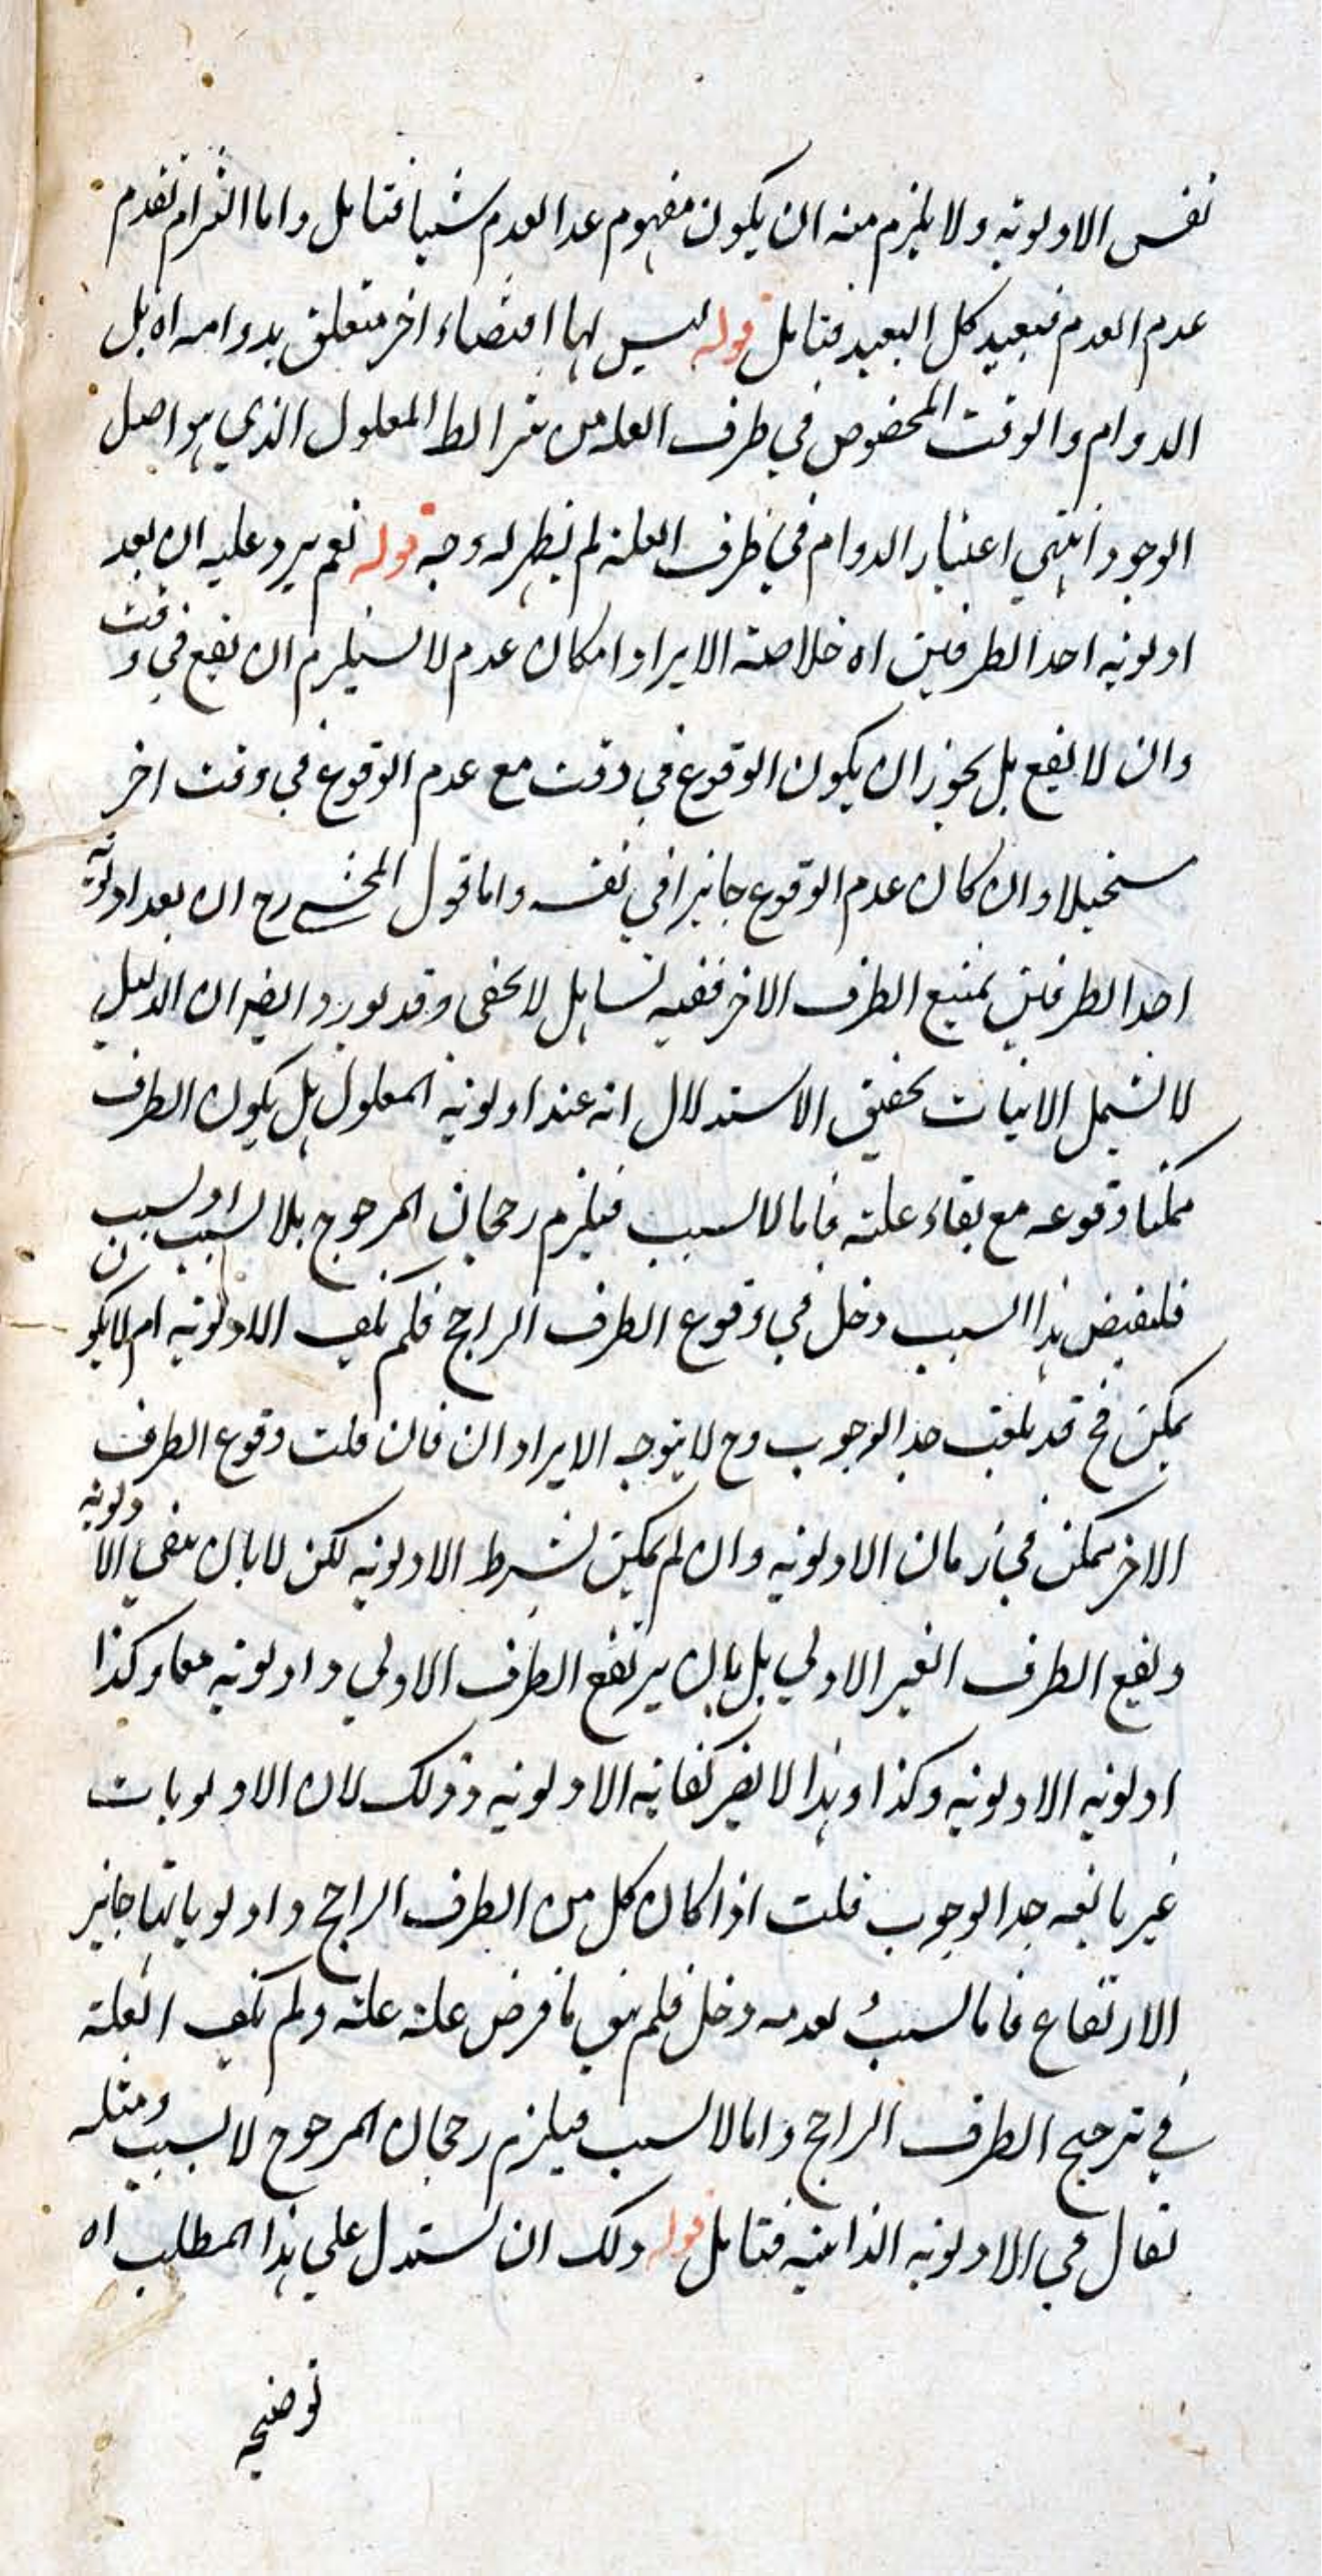 نفس الاولوية ولا يلزم منه ان يكون مفهوم عدا العدم شيئا فتامل واما التزام تقدم
عدم العدم فبعيد كل البعيد فتامل قوله ليس لها اقتضاء اخر متعلق بدوامه اه بل
الدوام والوقت المخصوص في طرف العله من شرائط المعلول الذي هو اصل
الوجود انتهي اعتبار الدوام في طرف العلة لم يظهر له وجه قوله نعم يرد عليه ان بعد
اولوية احد الطرفين اه خلاصة الايراد امكان عدم لا يستلزم ان يقع في وقت
وان لا يقع بل يجوز ان يكون الوقوع في وقت مع عدم الوقوع في وقت اخر
مستحيلا وان كان عدم الوقوع جائزا في نفسه واما قول المحشي رح ان بعد اولوية
احد الطرفين يمتنع الطرف الاخر ففيه تساهل لا يخفى وقد يورد ايضا ان الدليل
لا يشمل الانيات تحقيق الاستدلال انه عند اولوية المعلول هل يكون الطرف
ممكنا وقوعه مع بقاء علته فاما لا لسبب فيلزم رجحان المرجوح بلا سبب او لسبب
فلنقيض هذا السبب دخل في وقوع الطرف الراجح فلم تكف الاولوية ام لا يكون
يمكن فح قد بلغت حد الوجوب وح لا يتوجه الايراد ان فان قلت وقوع الطرف
الاخر ممكن في زمان الاولوية وان لم يمكن بشرط الاولوية لكن لا بان يبقي الاولوية
ويقع الطرف الغير الاولي بل بان يرتفع الطرف الاولي واولوية معا وكذا
اولوية الاولوية وكذا وهذا لا يضر كفاية الاولوية وذلك لان الاولويات
غير بالغه حد الوجوب قلت اذا كان كل من الطرف الراجح واولوياتها جائز
الارتفاع فاما لسبب لعدمه دخل فلم يبق ما فرض علة علة ولم تكف العلة
في ترجيح الطرف الراجح واما لا لسبب فيلزم رجحان المرجوح لا لسبب ومثله
يقال في الاولوية الذاتية فتامل قوله ولك ان تستدل علي هذا المطلب اه
توضيحه